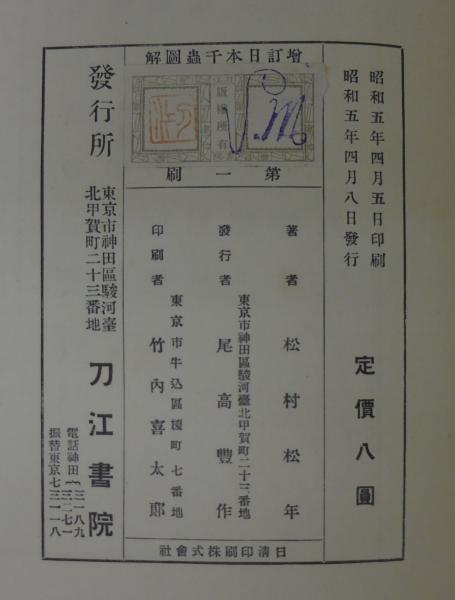 昭和五年四月五日印刷
昭和五年四月八日發行
定價八圓
增訂日本千蟲圖解
版權所有
第一刷
著者 松村松年
東京市神田區駿河臺北甲賀町二十三番地
發行者 尾高豐作
東京市牛込區榎町七番地
印刷者 竹內喜太郎
日淸印刷株式會社
發行所
東京市神田區駿河臺
北甲賀町二十三番地
刀江書院
電話神田
三一八九
三二七一
振替東京七三一一八